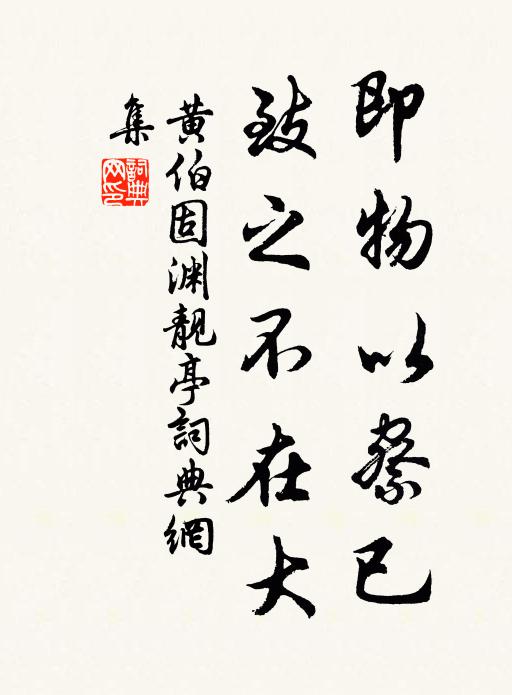 即物以察已
致之不在大
黄伯固渊靓亭詞典網
集
詞典网印